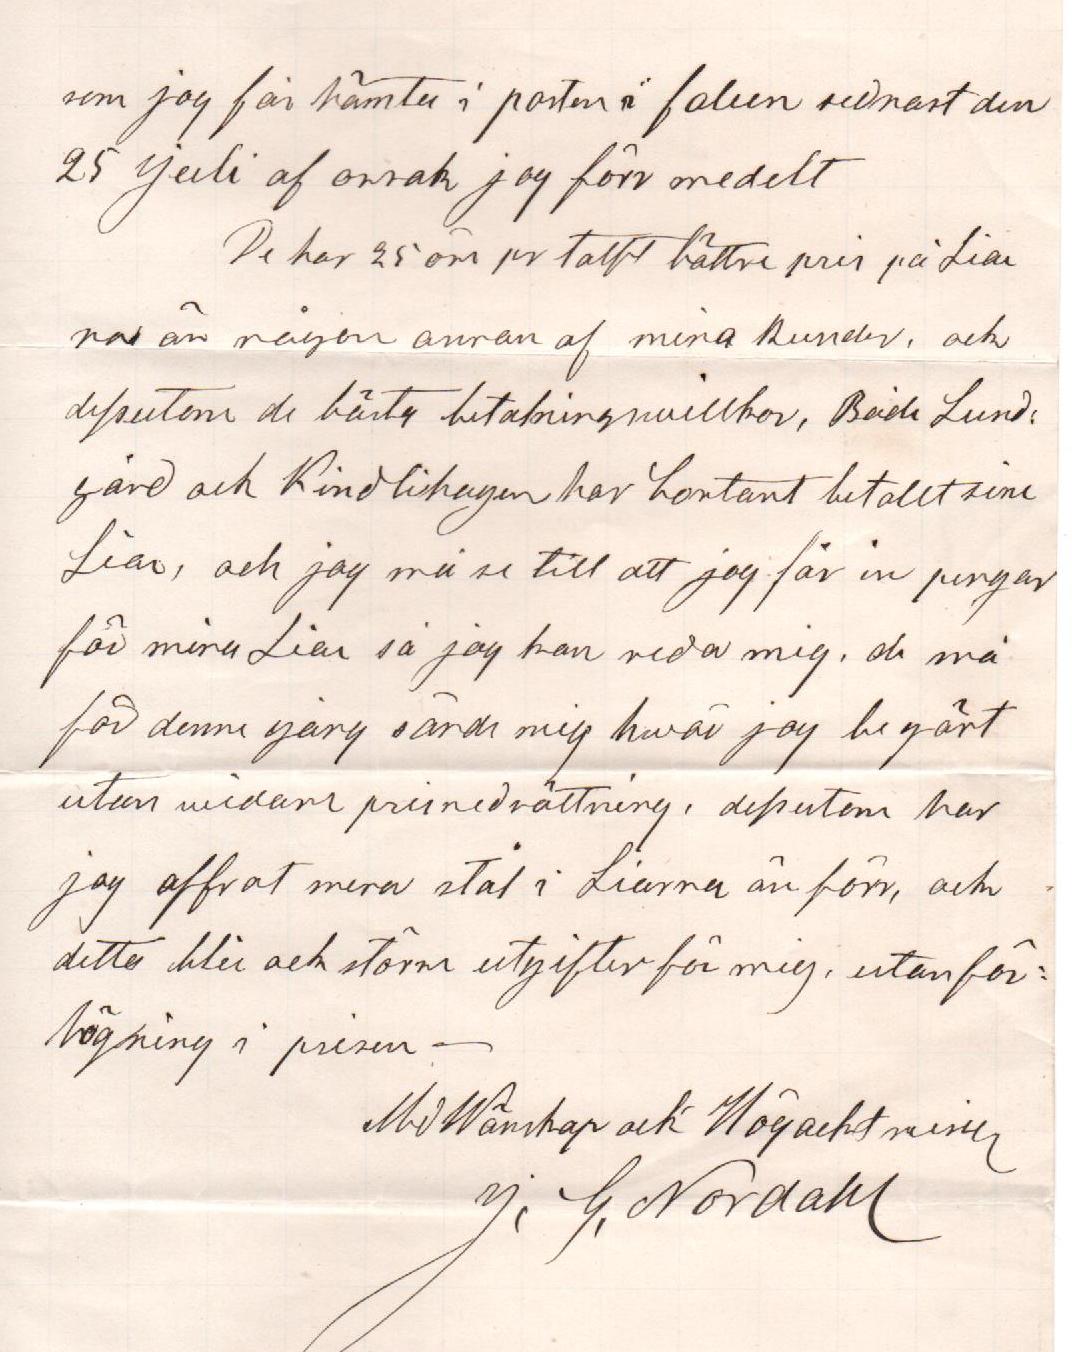 som jag får hämta i posten i falun sednast den
25 Juli af orsak jag förr medelt
De har 25 öre pr tolft bättre pris på Liar
na än någon annan af mina Kunder, och
dessutom de bästa betalningswillkor, Både Lund:
gård och Kindlihagen har kontant betallt sine
Liar, och jag må se till att jag får in pengar
för mina Liar så jag kan reda mig. de må
för denne gång sände mig hwad jag begärt
utan widare prisnedsättning. dessutom har
jag offrat mera stål i Liarna än förr, och
detta blir ock större utgifter för mig. utan för:
högning i prisen —
Med Wänskap och Högachtning
J. G. Nordahl